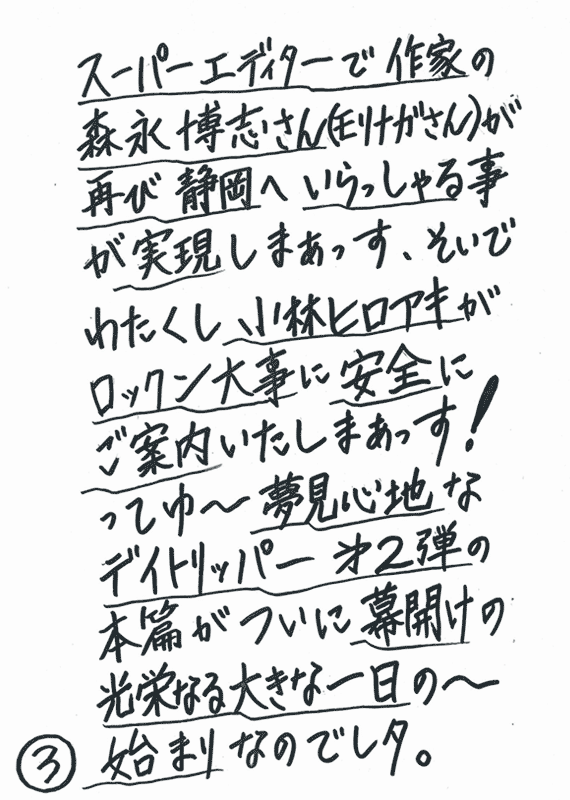 スーパーエディターで作家の
森永博志さん(モリナガさん)が
再び静岡へいらっしゃる事
が実現しまあっす、そいで
わたくし小林ヒロアキが
ロックン大事に安全に
ご案内いたしまあっす!
ってゆ〜夢見心地な
デイトリッパー才2弾の
本篇がついに幕開けの
光栄なる大きな一日の〜
③始まりなのでレタ。